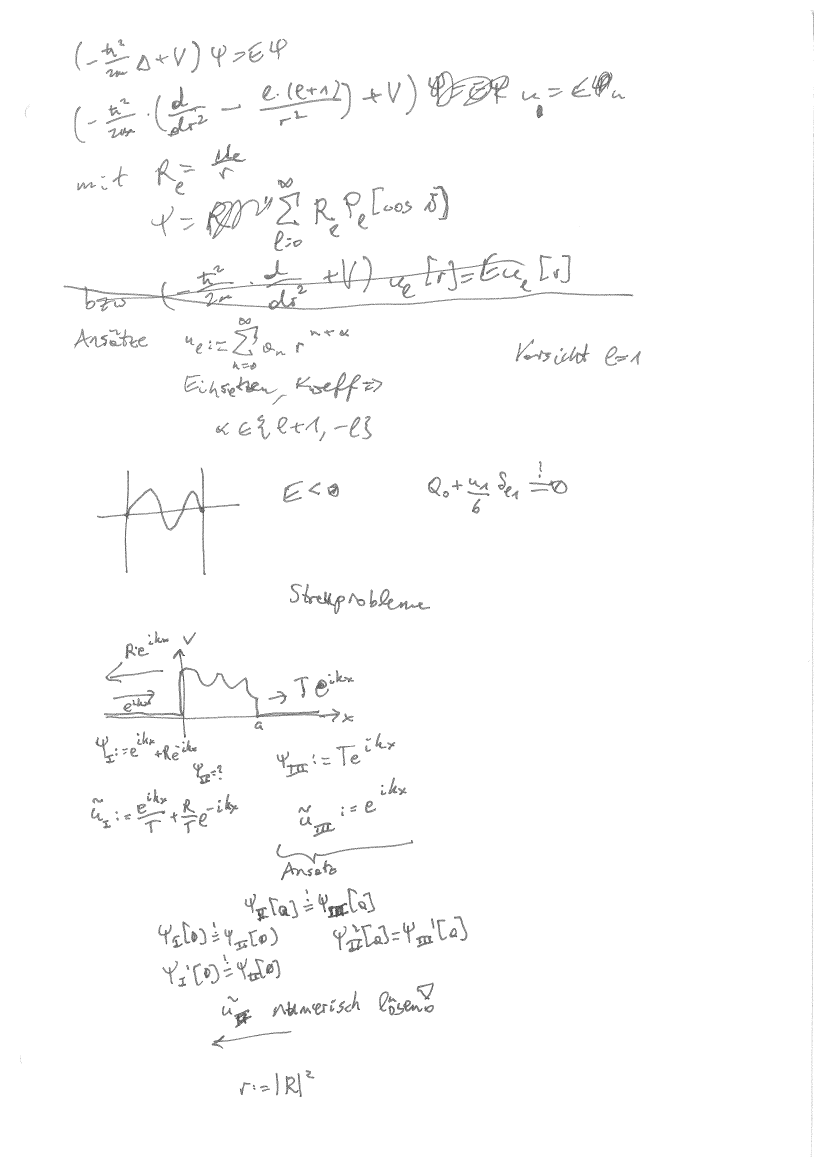 (-ħ²/2m Δ + V) Ψ = EΨ
(-ħ²/2m · (d/dr² - l·(l+1)/r²) + V) u = E u
mit R_l = u_l/r
Ψ = Σ_{l=0}^∞ R_l P_l [cos ϑ]
bzw (-ħ²/2m · d/dr² + V) u_l [r] = E u_l [r]
Ansätze u_l := Σ_{n=0}^∞ a_n r^{n+α}
Vorsicht l=1
Einsetzen, Koeff ⇒
α ∈ {l+1, -l}
E < 0
Q_0 + u_1/6 δ_{l1} =! 0
Streuprobleme
R·e^{ikx} V
e^{ikx}
→ T e^{ikx}
a x
Ψ_I := e^{ikx} + Re^{-ikx}
Ψ_II = ?
Ψ_III := Te^{ikx}
ũ_I := e^{ikx}/T + R/T e^{-ikx}
ũ_III := e^{ikx}
Ansatz
Ψ_II[a] =! Ψ_III[a]
Ψ_I[0] =! Ψ_II[0]
Ψ_II'[a] = Ψ_III'[a]
Ψ_I'[0] =! Ψ_II[0]
ũ_II numerisch lösen
r := |R|²